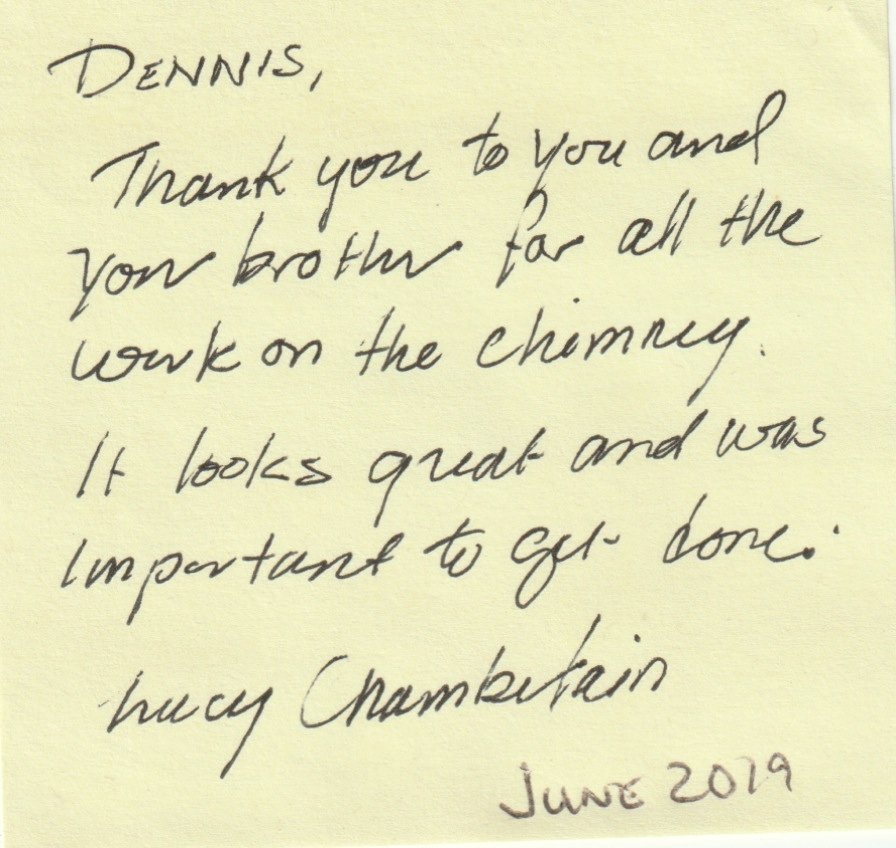 DENNIS,
Thank you to you and
your brother for all the
work on the chimney.
It looks great and was
important to get done.
Lucy Chamberlain
JUNE 2019